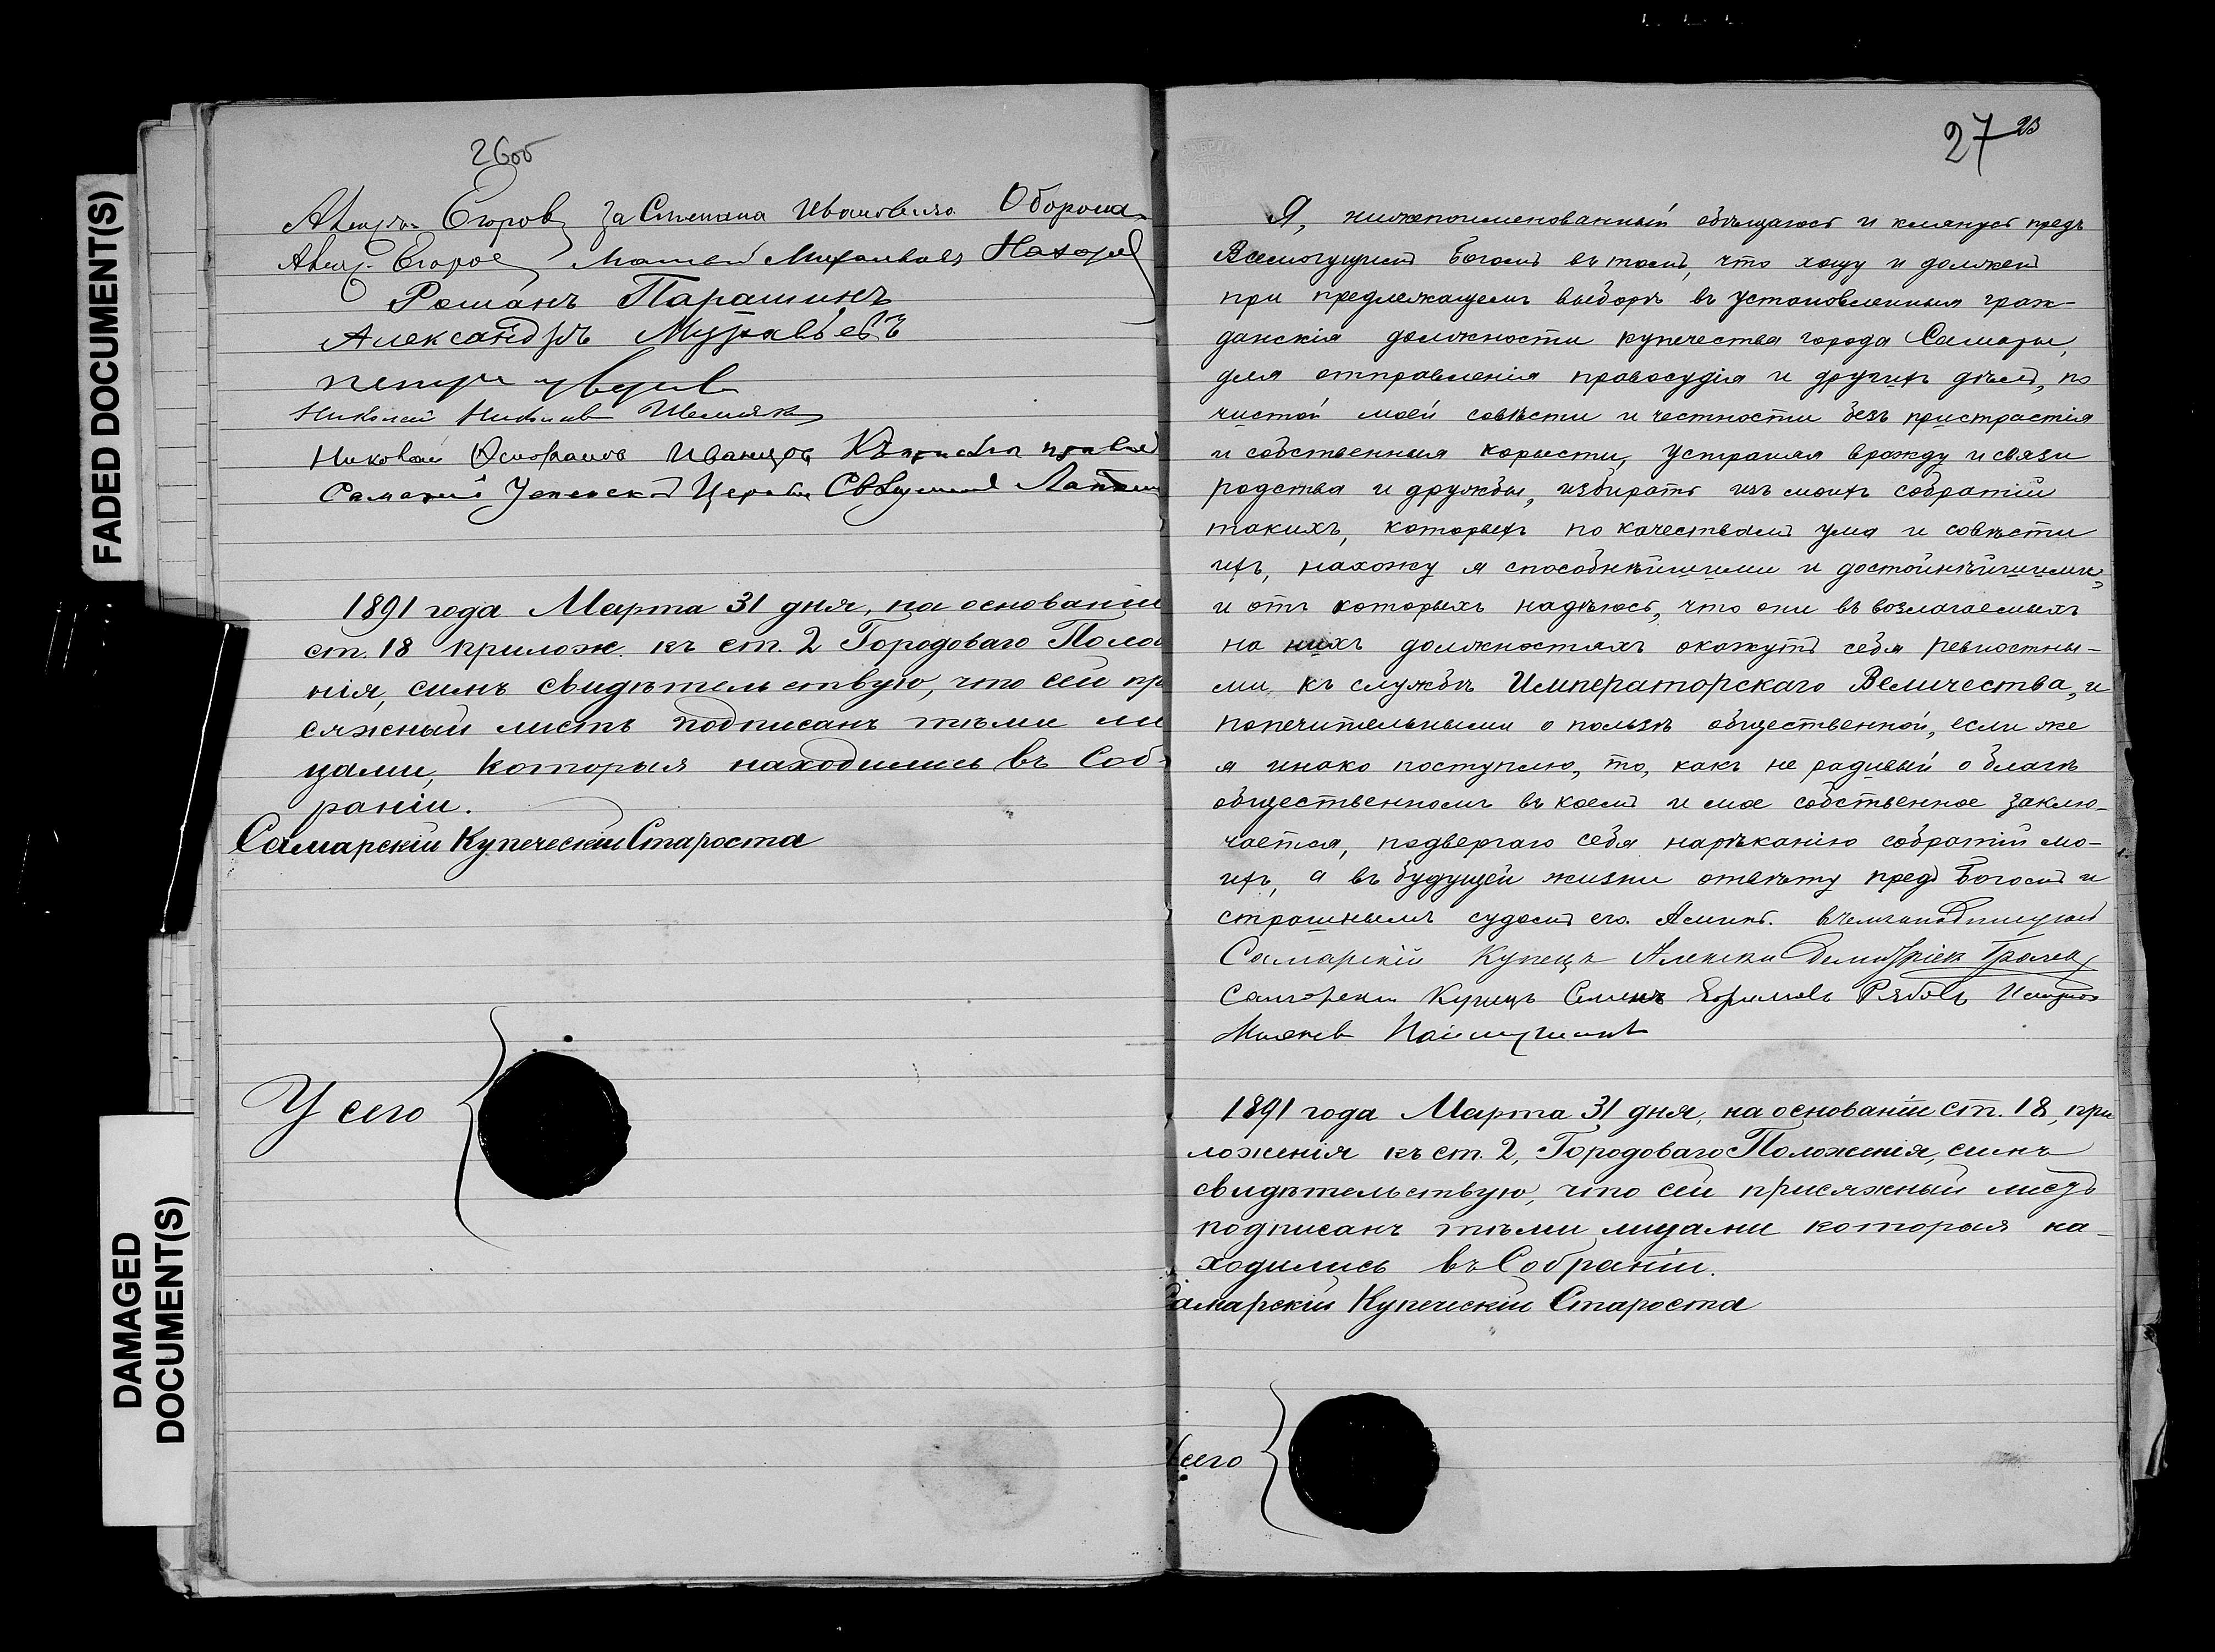 FADED DOCUMENT(S)
DAMAGED
DOCUMENT(S)
26об
Егоровъ за Степана Ивановича
Егоров
Романъ Парашинъ
Александръ Муравьевъ
Николай Шемяк
Николай Иванцов
Церкви
1891 года Марта 31 дня, на основаніи
ст. 18 прилож. къ ст. 2 Городоваго Полож
нія, симъ свидѣтельствую, что сей пр
сяжный листъ подписанъ тѣми ли
цами, которыя находились въ Соб-
раніи.
Самарскій Купеческій Староста
У сего
27 23
Я, нижепоименованный обѣщаюсь и клянусь предъ
Всемогущимъ Богомъ въ томъ, что хощу и долженъ
при предлежащемъ выборѣ въ установленныя граж-
данскія должности купечества города Самары,
для отправленія правосудія и другихъ дѣлъ, по
чистой моей совѣсти и честности безъ пристрастія
и собственныя корысти, устраняя вражду и связи
родства и дружбы, избирать изъ моихъ собратій
такихъ, которыхъ по качествамъ ума и совѣсти
ихъ, нахожу я способнѣйшими и достойнѣйшими,
и отъ которыхъ надѣюсь, что они въ возлагаемыхъ
на нихъ должностяхъ окажутъ себя ревностны-
ми къ службѣ Императорскаго Величества, и
попечительными о пользѣ общественной, если же
я инако поступлю, то, какъ не радивый о благѣ
общественномъ въ коемъ и мое собственное заклю-
чается, подвергаю себя нарѣканію собратій мо-
ихъ, а въ будущей жизни отвѣту предъ Богомъ и
страшнымъ судомъ его. Аминь. в чем и подписуюсь
Самарскій Купецъ Алексѣй
Купецъ Семенъ Ефимовъ Рябовъ
1891 года Марта 31 дня, на основаніи ст. 18, при
ложенія къ ст. 2, Городоваго Положенія, симъ
свидѣтельствую, что сей присяжный листъ
подписанъ тѣми лицами которыя на-
ходились въ Собраніи.
Самарскій Купеческій Староста
У сего